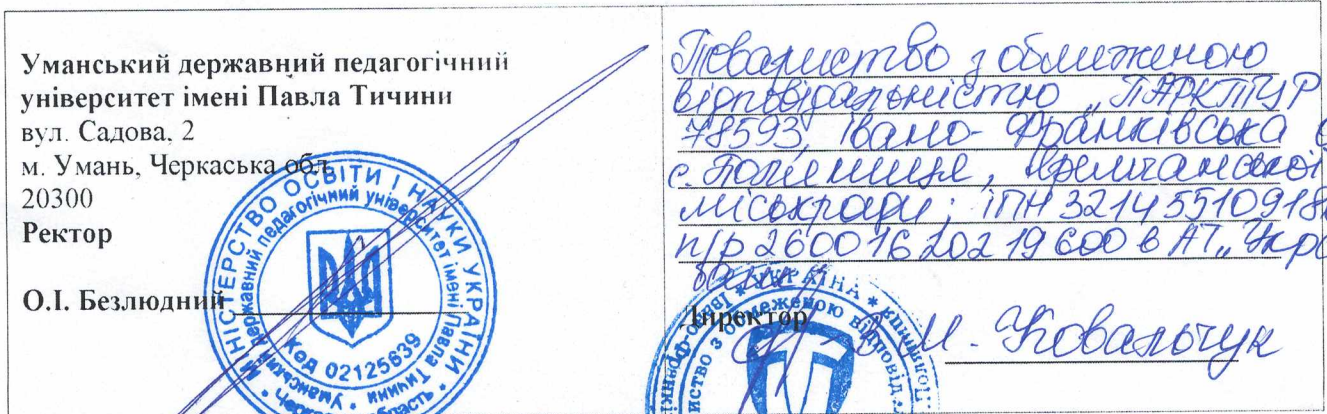 Уманський державний педагогічний
університет імені Павла Тичини
вул. Садова, 2
м. Умань, Черкаська обл.
20300
Ректор
О.І. Безлюдний
МІНІСТЕРСТВО ОСВІТИ І НАУКИ УКРАЇНИ
Уманський державний педагогічний університет імені Павла Тичини
Код 02125639
Черкаська область
Товариство з обмеженою
відповідальністю „ПАРКТУР
78593, Івано-Франківська
с. Поляниця, Яремчанської
міськради; ІПН 3214551091
п/р 26001620219600 в АТ „Укр
Директор
В.М. Ковальчук
УКРАЇНА
з обмеженою